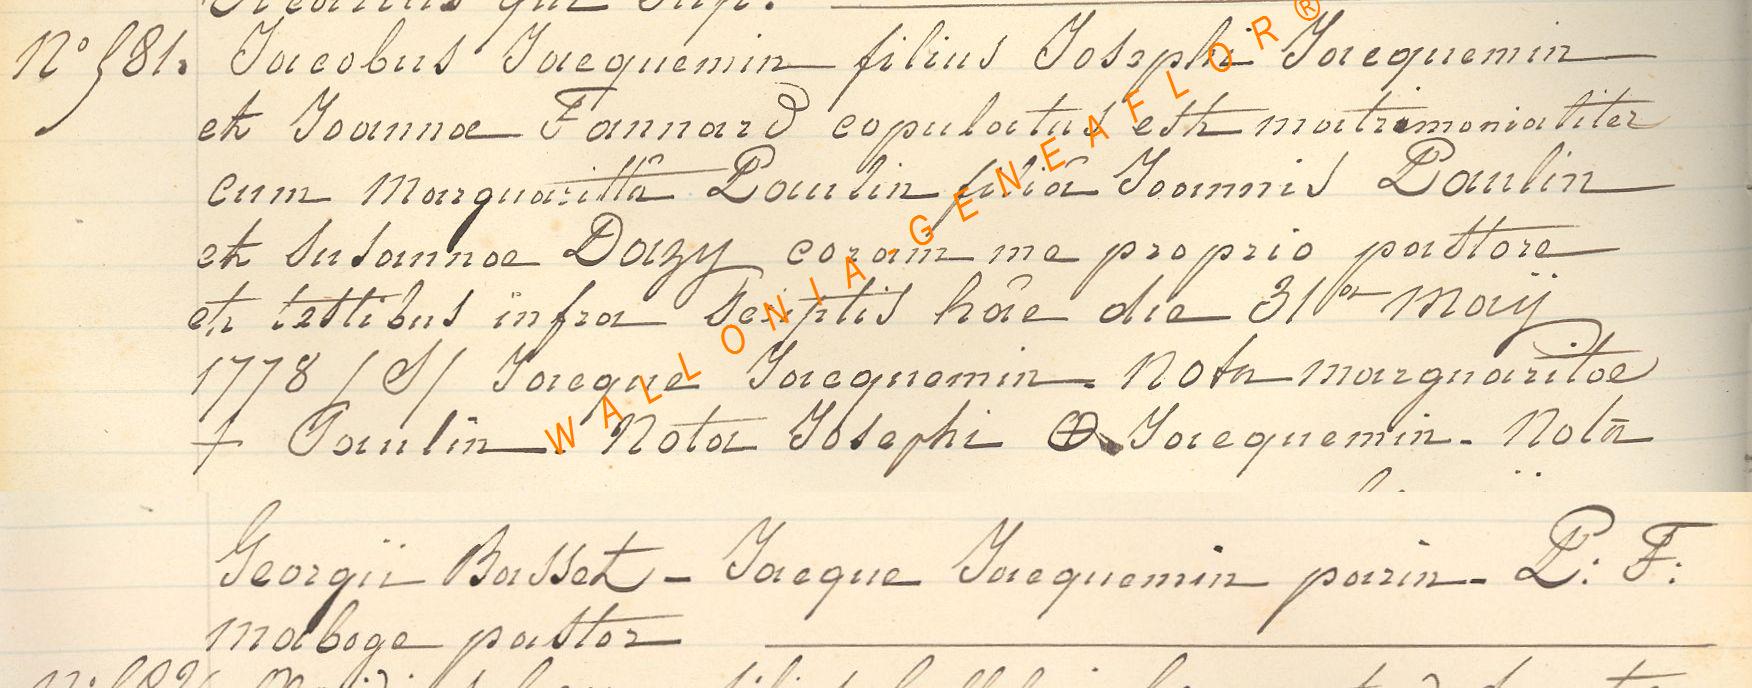 N° 581. Jacobus Jacquemin filius Josephi Jacquemin
et Joannae Fannard copulatus est matrimonialiter
cum Marguarittâ Paulin filiâ Joannis Paulin
et Susannae Dazy coram me proprio pastore
et testibus infra Scriptis hâc die 31ª Maÿ
1778 /S/ Jacque Jacquemin - Nota marguaritae
+ Paulin - Nota Josephi ⊕ Jacquemin - Nota
Georgii Basset - Jacque Jacquemin parin - P: F:
maboge pastor
WALLONIA - GENEAFLOR®